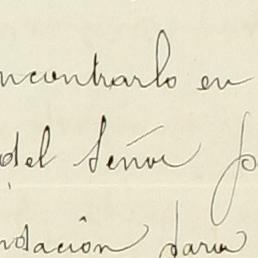 ncontrarlo en
del Señor
ndación para